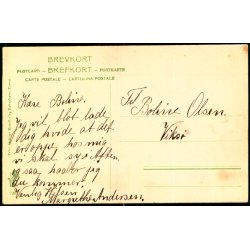 BREVKORT
POSTCARD — BREFKORT — POSTKARTE
CARTE POSTALE — CARTOLINA POSTALE
Kære Boline.
Jeg vil blot lade
dig hvide at det
er hos mig
vi skal sy i Aften
saa haaber jeg
du kommer.
Venlig Hilsen
Margrethe Andersen.
Til
Boline Olsen